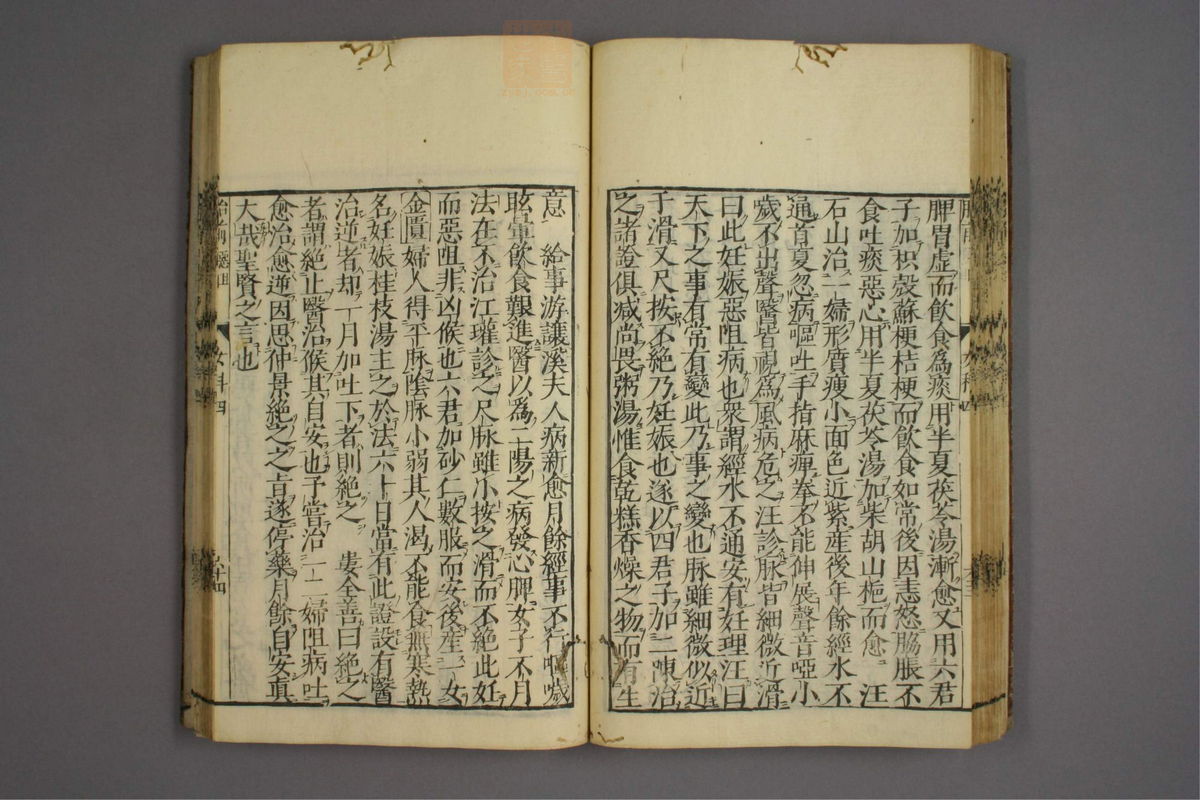 脾胃虛而飲食為痰用半夏茯苓湯漸愈又用六君
子加枳殼蘇梗桔梗而飲食如常後因恚怒脇脹不
食吐痰惡心用半夏茯苓湯加柴胡山梔而愈　汪
石山治一婦形瘦小面色近紫産後年餘經水不
通首夏忽病嘔吐手指麻痺拳不能伸展聲音啞小
噦不出聲醫皆視為風病危之汪診脉皆細微近滑
曰此妊娠惡阻病也衆謂經水不通安有妊理汪曰
天下之事有常有變此乃事之變也脉雖細微似近
于滑又尺按不絶乃妊娠也遂以四君子加二陳治
之諸證俱減尚畏粥湯惟食乾糕香燥之物而有生
意　給事游讓溪夫人病新愈月餘經事不行嘔噦
眩暈飲食艱進醫以為二陽之病發心脾女子不月
法在不治江瓘診之尺脉雖小按之滑而不絶此妊
而惡阻非凶候也六君加砂仁數服而安後産一女
金匱婦人得平脉陰脉小弱其人渴不能食無寒熱
名妊娠桂枝湯主之於法六十日當有此證設有醫
治逆者却一月加吐下者則絶之　婁全善曰絶之
者謂絶止醫治候其自安也予嘗治一二婦阻病吐
愈治愈逆因思仲景絶之之旨遂停藥月餘自安真
大哉聖賢之言也
女科四